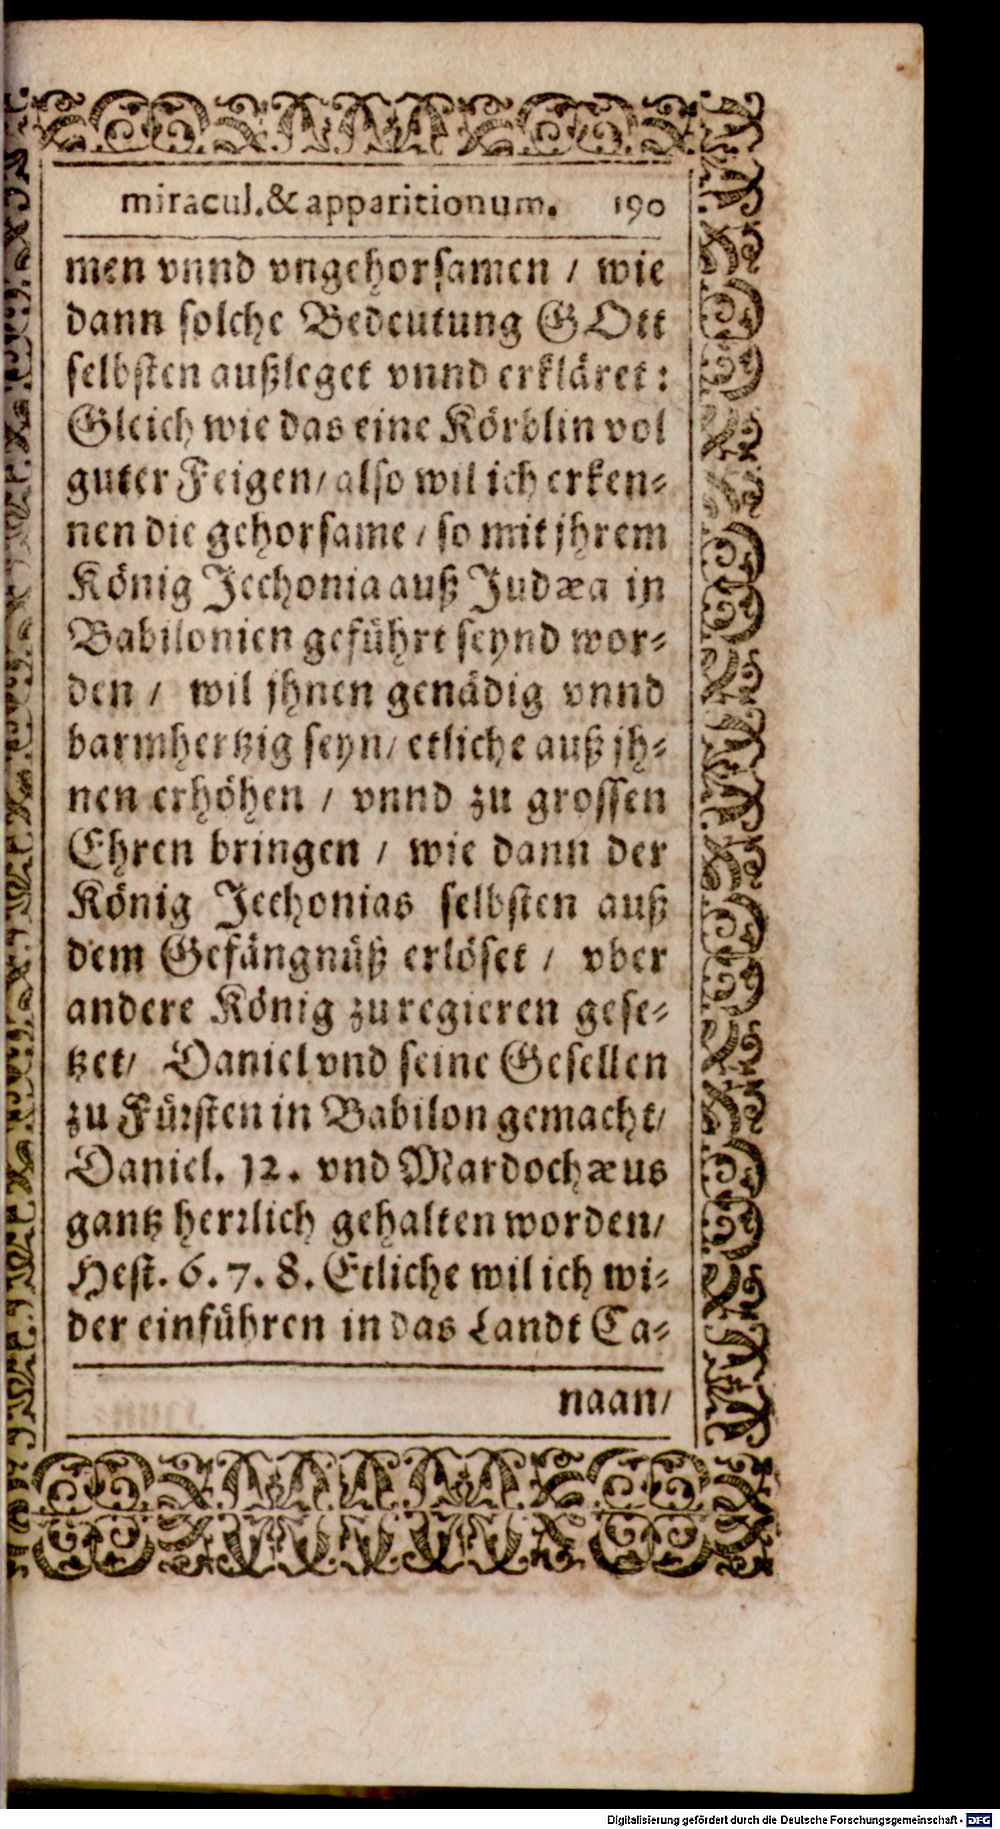 miracul.& apparitionum. 190
men vnnd vngehorsamen / wie
dann solche Bedeutung GOtt
selbsten außleget vnnd erkläret :
Gleich wie das eine Körblin vol
guter Feigen / also wil ich erken-
nen die gehorsame / so mit jhrem
König Jechonia auß Judæa in
Babilonien geführt seynd wor-
den / wil jhnen genädig vnnd
barmhertzig seyn / etliche auß jh-
nen erhöhen / vnnd zu grossen
Ehren bringen / wie dann der
König Jechonias selbsten auß
dem Gefängnüß erlöset / vber
andere König zu regieren gese-
tzet / Daniel vnd seine Gesellen
zu Fürsten in Babilon gemacht /
Daniel. 12. vnd Mardochæus
gantz herrlich gehalten worden /
Hest. 6. 7. 8. Etliche wil ich wi-
der einführen in das Landt Ca-
naan /
Digitalisierung gefördert durch die Deutsche Forschungsgemeinschaft - DFG